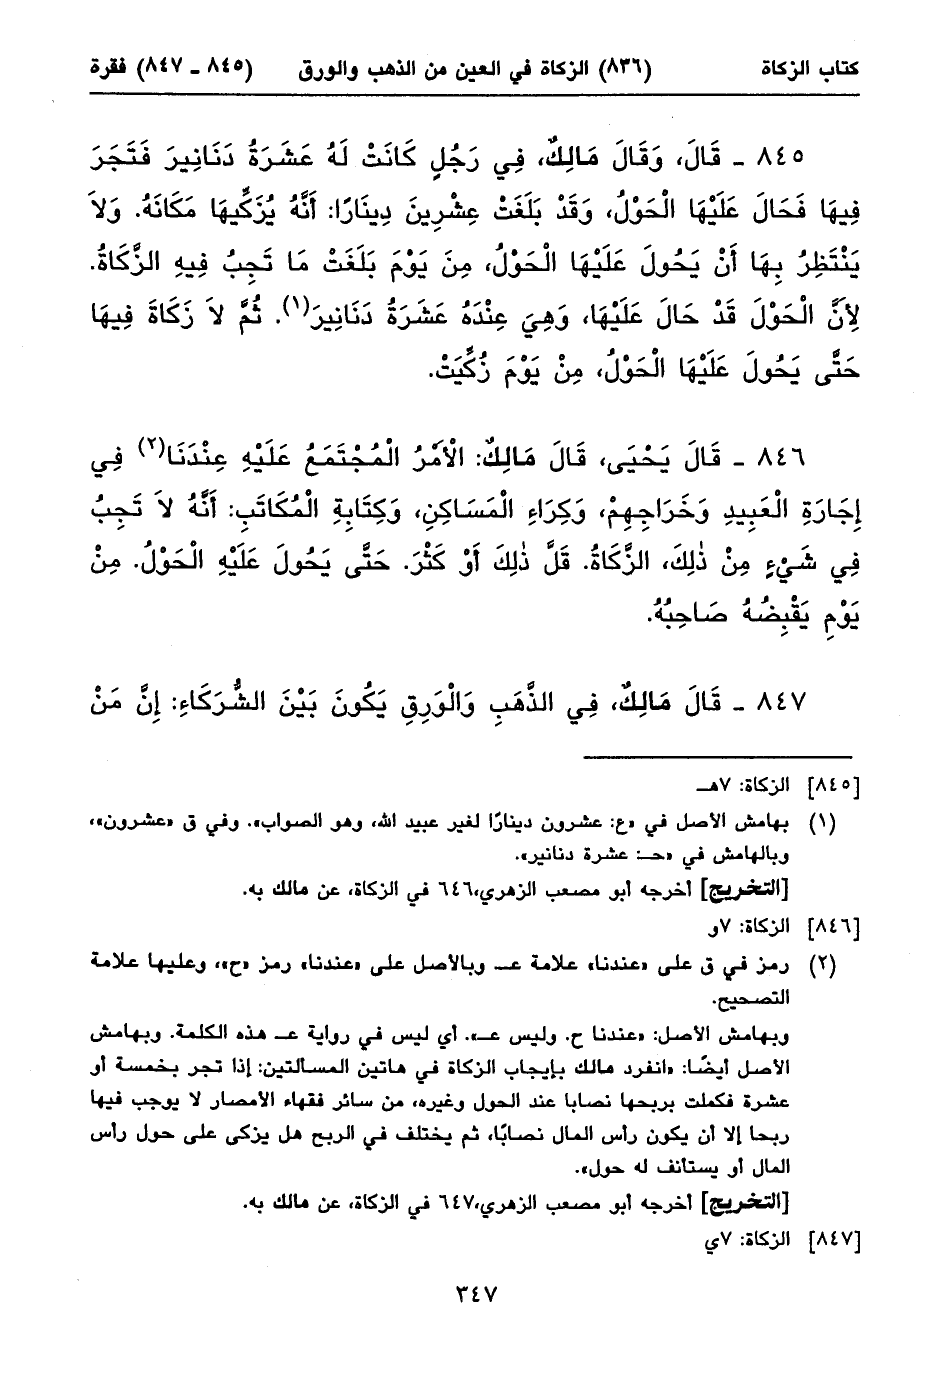 كتاب الزكاة (٨٣٦) الزكاة في العين من الذهب والورق (٨٤٥ - ٨٤٧) فقرة
٨٤٥ - قَالَ، وَقَالَ مَالِكٌ، فِي رَجُلٍ كَانَتْ لَهُ عَشَرَةُ دَنَانِيرَ فَتَجَرَ
فِيهَا فَحَالَ عَلَيْهَا الْحَوْلُ، وَقَدْ بَلَغَتْ عِشْرِينَ دِينَارًا: أَنَّهُ يُزَكِّيهَا مَكَانَهُ. وَلاَ
يَنْتَظِرُ بِهَا أَنْ يَحُولَ عَلَيْهَا الْحَوْلُ، مِنَ يَوْمَ بَلَغَتْ مَا تَجِبُ فِيهِ الزَّكَاةُ.
لِأَنَّ الْحَوْلَ قَدْ حَالَ عَلَيْهَا، وَهِيَ عِنْدَهُ عَشَرَةُ دَنَانِيرَ(١). ثُمَّ لاَ زَكَاةَ فِيهَا
حَتَّى يَحُولَ عَلَيْهَا الْحَوْلُ، مِنْ يَوْمَ زُكِّيَتْ.
٨٤٦ - قَالَ يَحْيَى، قَالَ مَالِكٌ: الْأَمْرُ الْمُجْتَمَعُ عَلَيْهِ عِنْدَنَا(٢) فِي
إِجَارَةِ الْعَبِيدِ وَخَرَاجِهِمْ، وَكِرَاءِ الْمَسَاكِنِ، وَكِتَابَةِ الْمُكَاتَبِ: أَنَّهُ لاَ تَجِبُ
فِي شَيْءٍ مِنْ ذٰلِكَ، الزَّكَاةُ. قَلَّ ذٰلِكَ أَوْ كَثُرَ. حَتَّى يَحُولَ عَلَيْهِ الْحَوْلُ. مِنْ
يَوْمِ يَقْبِضُهُ صَاحِبُهُ.
٨٤٧ - قَالَ مَالِكٌ، فِي الذَّهَبِ وَالْوَرِقِ يَكُونَ بَيْنَ الشُّرَكَاءِ: إِنَّ مَنْ
[٨٤٥] الزكاة: ٧هـ
(١) بهامش الأصل في «ع: عشرون دينارًا لغير عبيد الله، وهو الصواب». وفي ق «عشرون»،
وبالهامش في «حـ: عشرة دنانير».
[التخريج] أخرجه أبو مصعب الزهري،٦٤٦ في الزكاة، عن مالك به.
[٨٤٦] الزكاة: ٧و
(٢) رمز في ق على «عندنا» علامة عـ وبالأصل على «عندنا» رمز «ح»، وعليها علامة
التصحيح.
وبهامش الأصل: «عندنا ح. وليس عـ». أي ليس في رواية عـ هذه الكلمة. وبهامش
الأصل أيضًا: «انفرد مالك بإيجاب الزكاة في هاتين المسألتين: إذا تجر بخمسة أو
عشرة فكملت بربحها نصابا عند الحول وغيره، من سائر فقهاء الأمصار لا يوجب فيها
ربحا إلا أن يكون رأس المال نصابًا، ثم يختلف في الربح هل يزكى على حول رأس
المال أو يستأنف له حول».
[التخريج] أخرجه أبو مصعب الزهري،٦٤٧ في الزكاة، عن مالك به.
[٨٤٧] الزكاة: ٧ي
٣٤٧